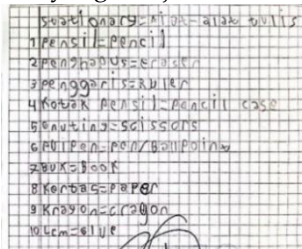 Stationary=Alat-alat tulis
1 Pensil=Pencil
2 Penghapus=eraser
3 Penggaris=Ruler
4 Kotak Pensil=Pencil case
5 Gunting=scissors
6 PulPen=Pen/BallPoint
7 BUK=BOOK
8 Kertas=Paper
9 Krayon=crayon
10 Lem=Glue